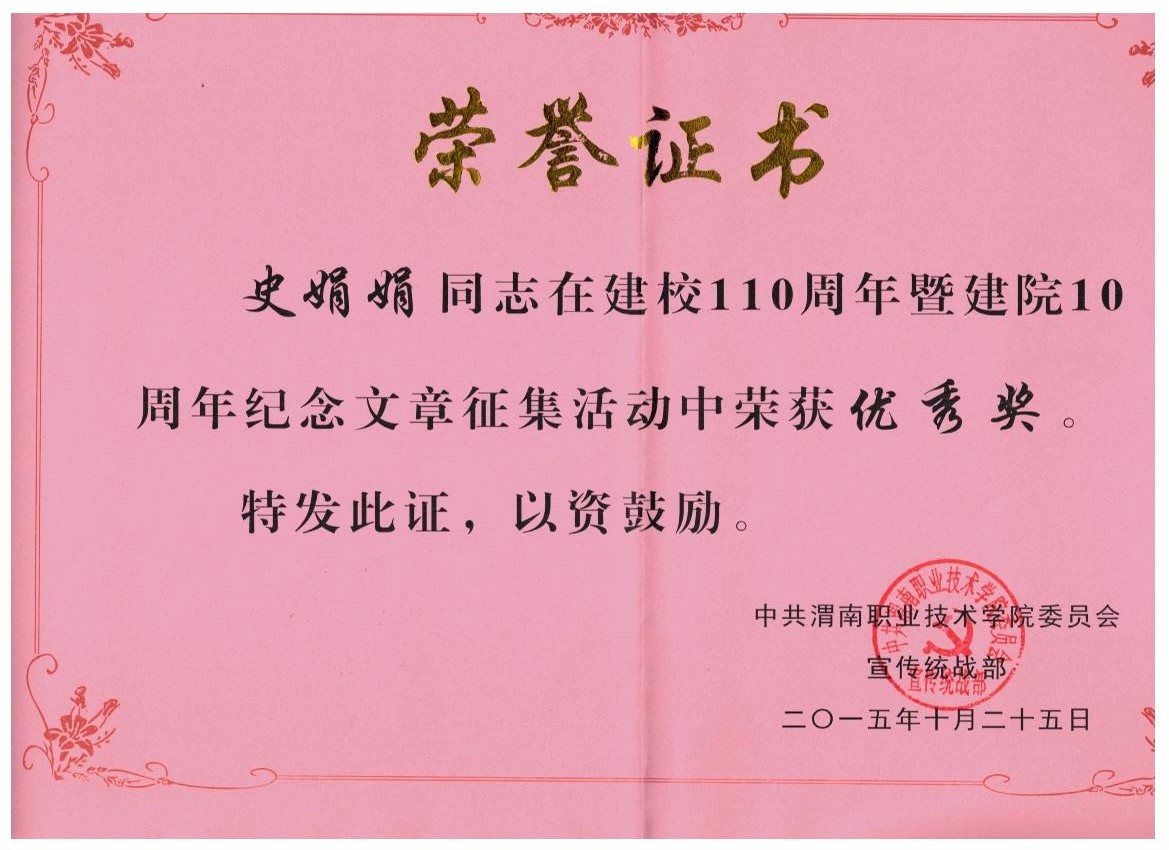 荣誉证书
史娟娟同志在建校110周年暨建院10
周年纪念文章征集活动中荣获优秀奖。
特发此证，以资鼓励。
中共渭南职业技术学院委员会
宣传统战部
二〇一五年十月二十五日
中共渭南职业技术学院委员会
宣传统战部